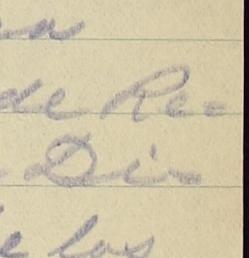 de Re=
Di-
de los